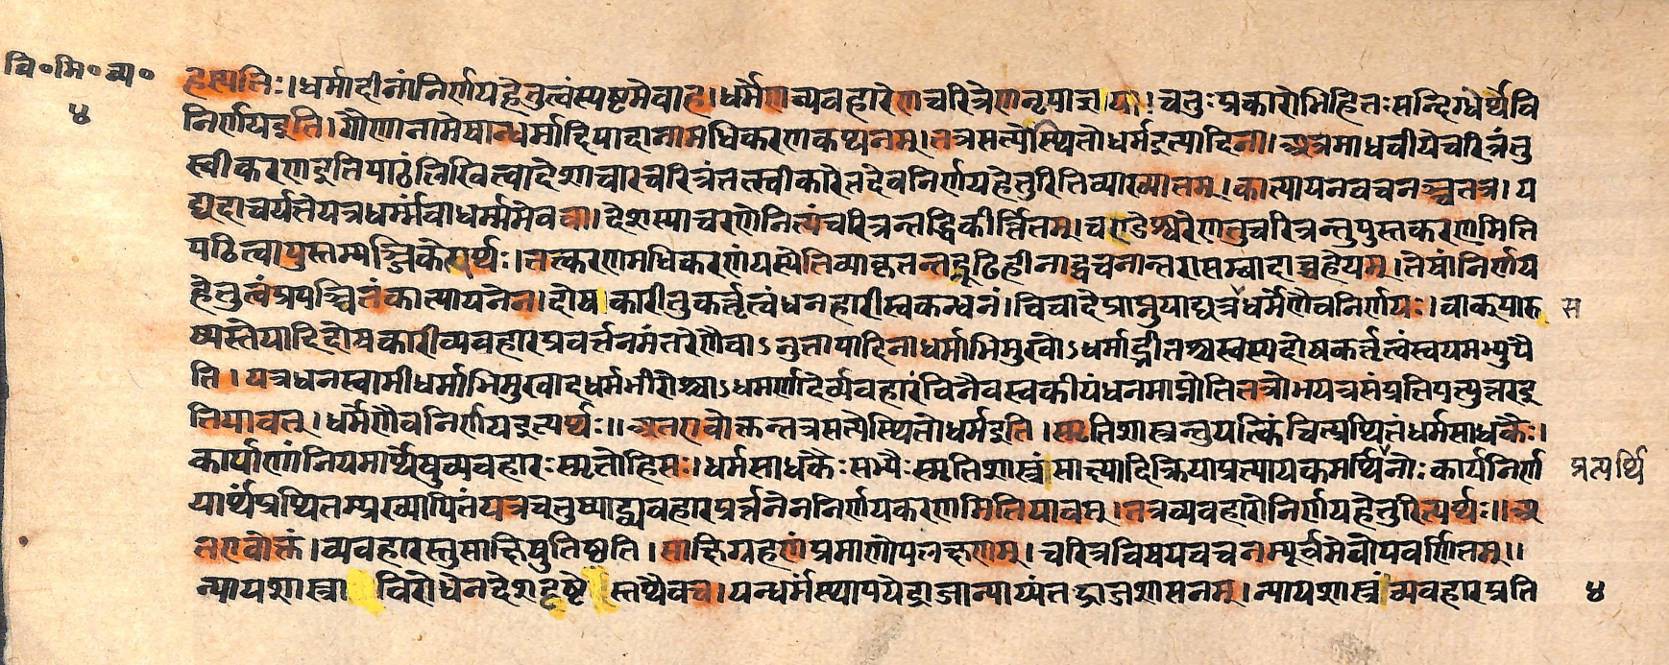 वि॰मि॰व्य॰
४
हस्पतिः।धर्मादीनांनिर्णयहेतुत्वंस्पष्टमेवाह।धर्मेणव्यवहारेणचरित्रेणनृपाज्ञया।चतुःप्रकारोभिहितःसन्दिग्धेर्थेवि
निर्णयइति।गौणानामेषान्धर्मादिपादानामधिकरणकथनम्।तत्रसत्येस्थितोधर्मइत्यादिना।अत्रमाधवीयेचरित्रंतु
स्वीकरणइतिपाठंलिखित्वादेशाचारचरित्रंतत्स्वीकारेतदेवनिर्णयहेतुरितिव्याख्यातम्।कात्यायनवचनञ्चतत्र।य
द्यदाचर्यतेयत्रधर्म्मंवाधर्म्ममेववा।देशस्याचरणेनित्यंचरित्रन्तद्धिकीर्त्तितम्।चण्डेश्वरेणतुचरित्रन्तुपुस्तकरणमिति
पठित्वापुस्तम्पञ्जिकेत्यर्थः।तत्करणमधिकरणंयस्येतिव्याकृतन्तद्रूढिहीनाद्वचनान्तरासम्वादाच्चहेयम्।तेषांनिर्णय
हेतुत्वंप्रपञ्चितंकात्यायनेन।दोषकारीतुकर्त्तृत्वंधनहारीस्वकन्धनं।विवादेप्राप्नुयाद्यत्रधर्मेणैवनिर्णयः।वाक्पारु स
ष्यस्तेयादिदोषकारीव्यवहारप्रवर्त्तनमंतरेणैवाऽनुतापादिनाधर्माभिमुखोऽधर्माद्भीतश्चस्वस्यदोषकर्त्तृत्वंस्वयमभ्युपै
ति।यत्रधनस्वामीधर्माभिमुखादधर्मभीरोश्चाऽधमर्णादेर्व्यवहारंविनैवस्वकीयंधनमाप्नोतितत्रोभयत्रसंप्रतिपत्त्युत्तरइ
तियावत्।धर्मेणैवनिर्णयइत्यर्थः॥अतएवोक्तन्तत्रसत्येस्थितोधर्मइति।स्मृतिशास्त्रन्तुयत्किंचित्प्रथितंधर्मसाधकैः।
कार्याणांनिर्णयमार्थेषुव्यवहारःस्मृतोहिसः।धर्मसाधकैःसभ्यैःस्मृतिशास्त्रंसाक्ष्यादिक्रियाप्रत्यायकमर्थिनोःकार्यनिर्ण प्रत्यर्थि
यार्थंप्रथितम्प्रख्यापितंयत्रचतुष्पाद्व्यवहारप्रवर्त्तनेननिर्णयकरणमितियावत्।तत्रव्यवहारोनिर्णयहेतुरित्यर्थः॥अ
तएवोक्तं।व्यवहारस्तुसाक्षिषुतिष्ठति।साक्षिग्रहणंप्रमाणोपलक्षणम्।चरित्रविषयवचनम्पूर्वमेवोपवर्णितम्॥
न्यायशास्त्राविरोधेनदेशदृष्टेस्तथैवच।यन्धर्मंस्थापयेद्राजान्याय्यंतद्राजशासनम्।न्यायशास्त्रंव्यवहारप्रति ४